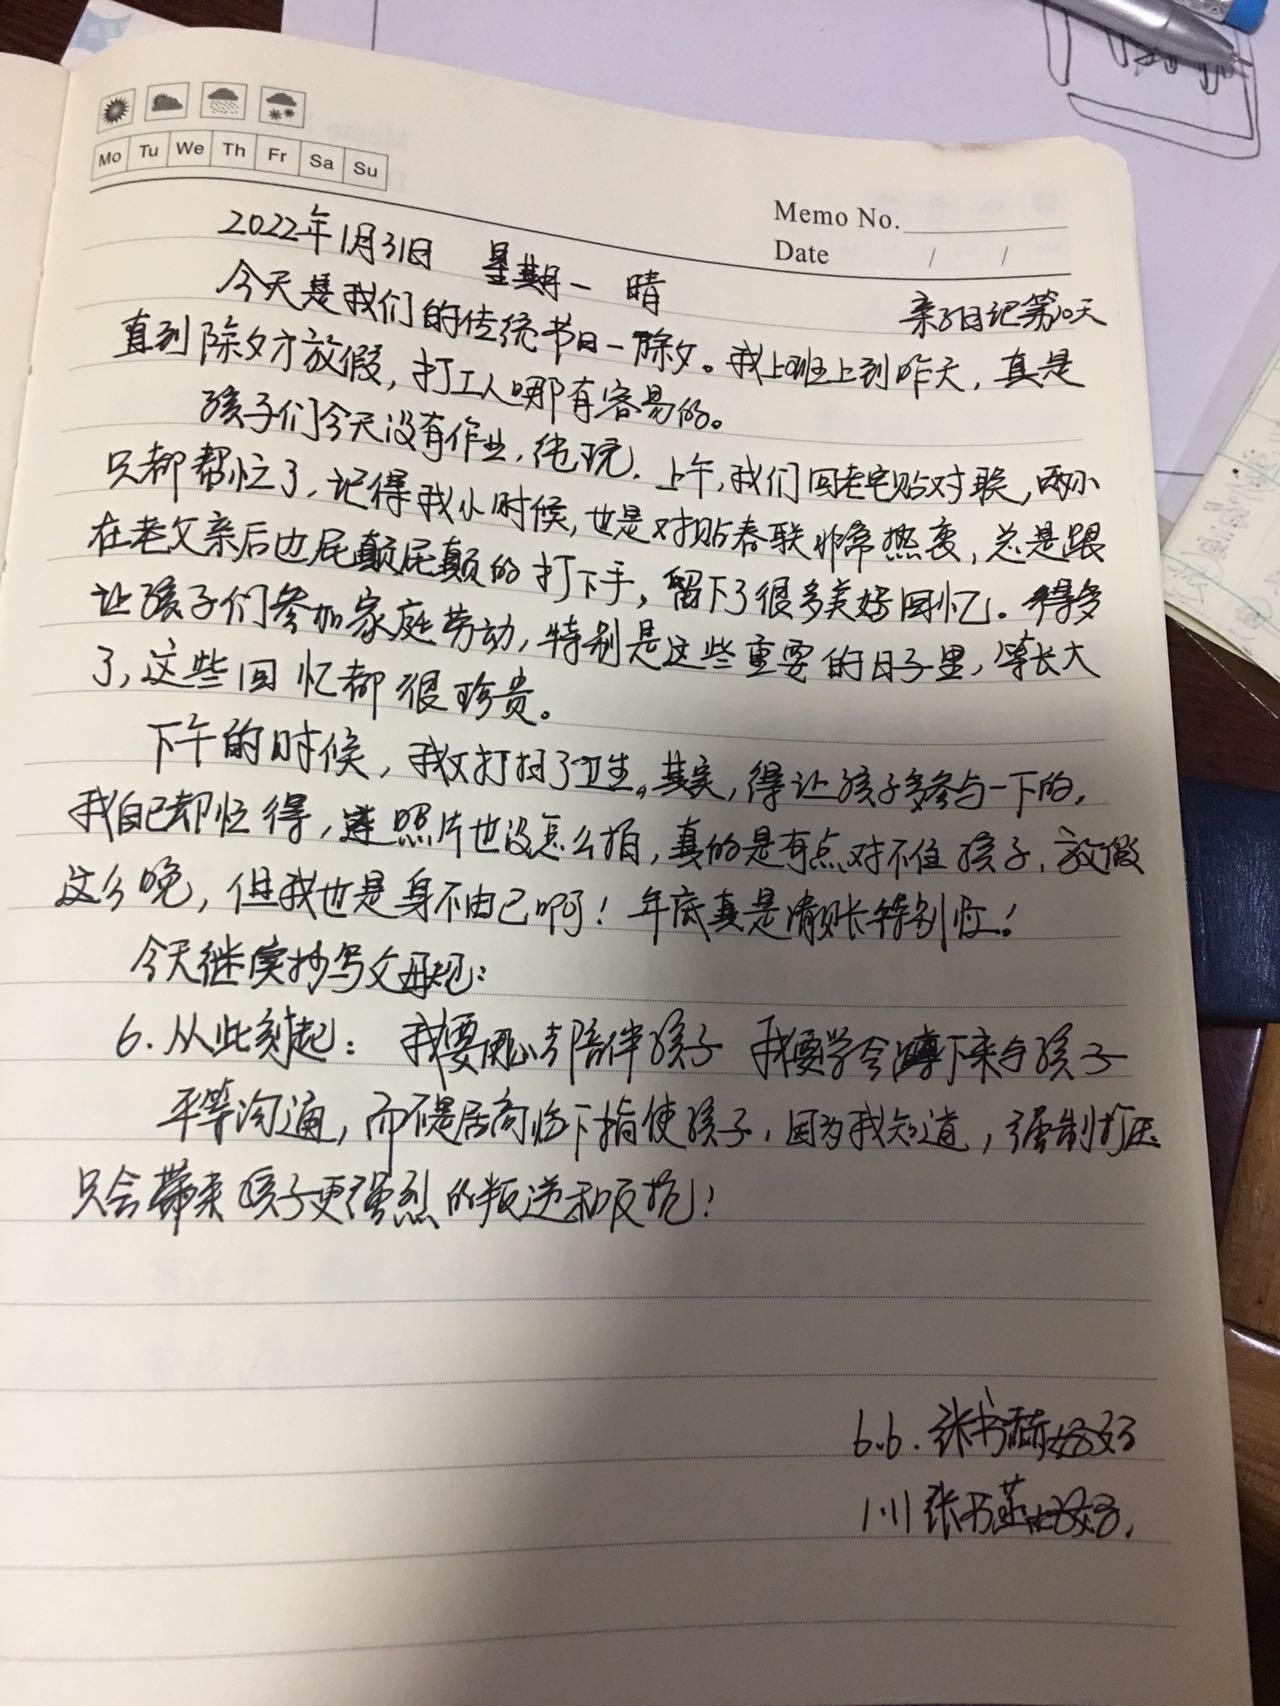 Mo Tu We Th Fr Sa Su
Memo No.
Date / /
2022年1月31日 星期一 晴
亲子日记第10天
今天是我们的传统节日—除夕。我上班上到昨天,真是
直到除夕才放假,打工人哪有容易的。
孩子们今天没有作业,纯玩.上午,我们回老宅贴对联,两小
只都帮忙了,记得我小时候,也是对贴春联非常热衷,总是跟
在老父亲后边屁颠屁颠的打下手,留下了很多美好回忆。得多
让孩子们参加家庭劳动,特别是这些重要的日子里,等长大
了,这些回忆都很珍贵。
下午的时候,我又打扫了卫生。其实,得让孩子多参与一下的,
我自己却忙得,连照片也没怎么拍,真的是有点对不住孩子,放假
这么晚,但我也是身不由己啊!年底真是清账特别忙!
今天继续抄写父母规:
6.从此刻起:我要用心去陪伴孩子 我要学会蹲下来与孩子
平等沟通,而不是居高临下指使孩子,因为我知道,强制打压
只会带来孩子更强烈的叛逆和反抗!
6.6.张书赫妈妈
1.11张书